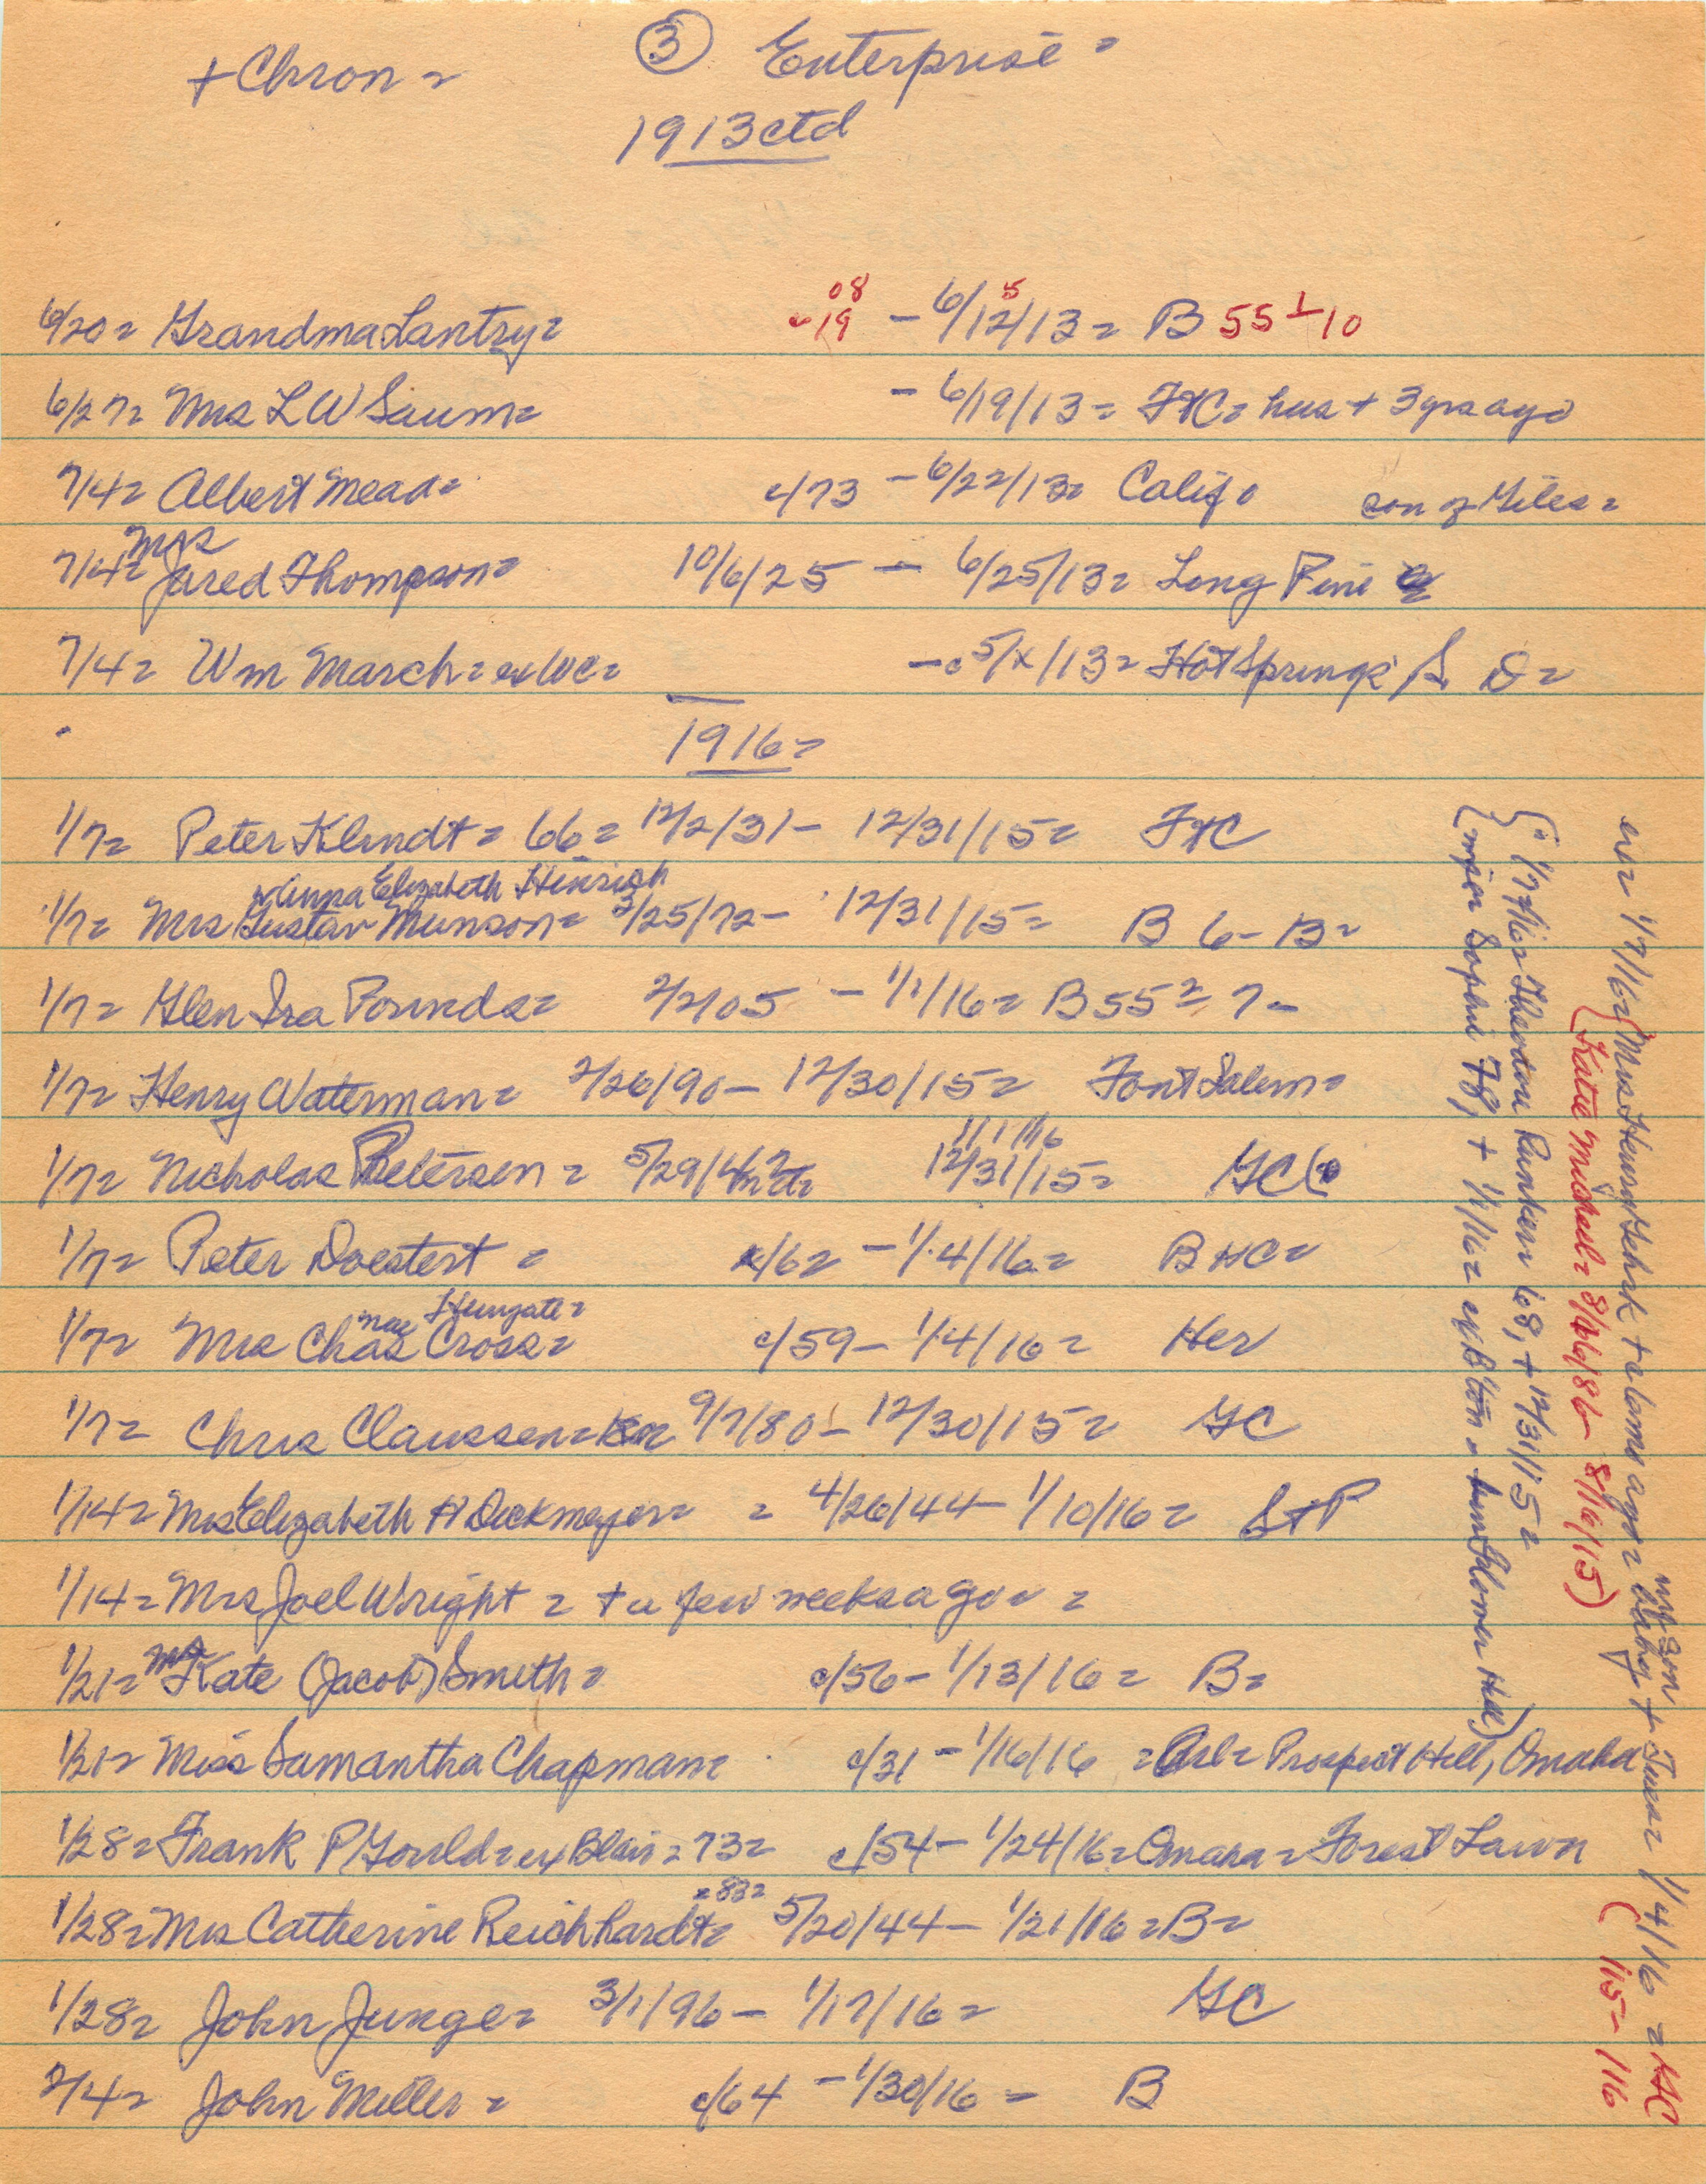 + Chron =
③ Enterprise =
1913 ctd
6/20 = Grandma Lantry =
08
c 19 - 6/12/13 = B 55 1 - 10
5
6/27 = Mrs L W Saum = - 6/19/13 = FtC = hus + 3 yrs ago
7/4 = Albert Mead = c/73 - 6/22/13 = Calif = son of Giles =
Mrs
7/4 = Jared Thompson = 10/6/25 - 6/25/13 = Long Pine
7/4 = Wm March = ex WC = - c 5/x/13 = Hot Springs S D =
1916 =
1/7 = Peter Klindt = 66 = 12/2/31 - 12/31/15 = FtC
Anna Elizabeth Hinrich
1/7 = Mrs Gustav Munson = 3/25/72 - 12/31/15 = B 6 - B =
1/7 = Glen Ira Pounds = 2/2/05 - 1/1/16 = B 55 2 = 7 -
1/7 = Henry Waterman = 2/26/90 - 12/30/15 = Font Salem =
1/1/16
1/7 = Nicholas Petersen = 5/29/42 12/31/15 = GC
1/7 = Peter Doestert = c/62 - 1/4/16 = B HC =
Mae Hungate =
1/7 = Mrs Chas Cross = c/59 - 1/4/16 = Her
1/7 = Chris Claussen = 9/7/80 - 12/30/15 = GC
1/14 = Mrs Elizabeth H Dickmeyer = = 4/26/44 - 1/10/16 = S+P
1/14 = Mrs Joel Wright = + a few weeks ago = =
Mrs
1/21 = Kate (Jacob) Smith = c/56 - 1/13/16 = B =
1/21 = Miss Samantha Chapman = c/31 - 1/16/16 = Arl = Prospect Hill, Omaha
1/28 = Frank P Gould = ex Blair = 73 = c/54 - 1/24/16 = Omaha = Forest Lawn
= 83 =
1/28 = Mrs Catherine Reichhardt = 5/20/44 - 1/21/16 = B =
1/28 = John Junge = 3/1/96 - 1/17/16 = GC
2/4 = John Miller = c/64 - 1/30/16 = B
{ 1/7/16 = Theodore Runken 68, + 12/31/15 =
{ Sophie 78, + 1/1/16 = ex Bton = Hill)
1/7/16 = (Mrs Henry Gehrk + a 6 mo ago = baby + Tues = 1/4/16 = HC
inf son
(Katie Michael = 8/26/86 - 8/16/15)
(115 - 116